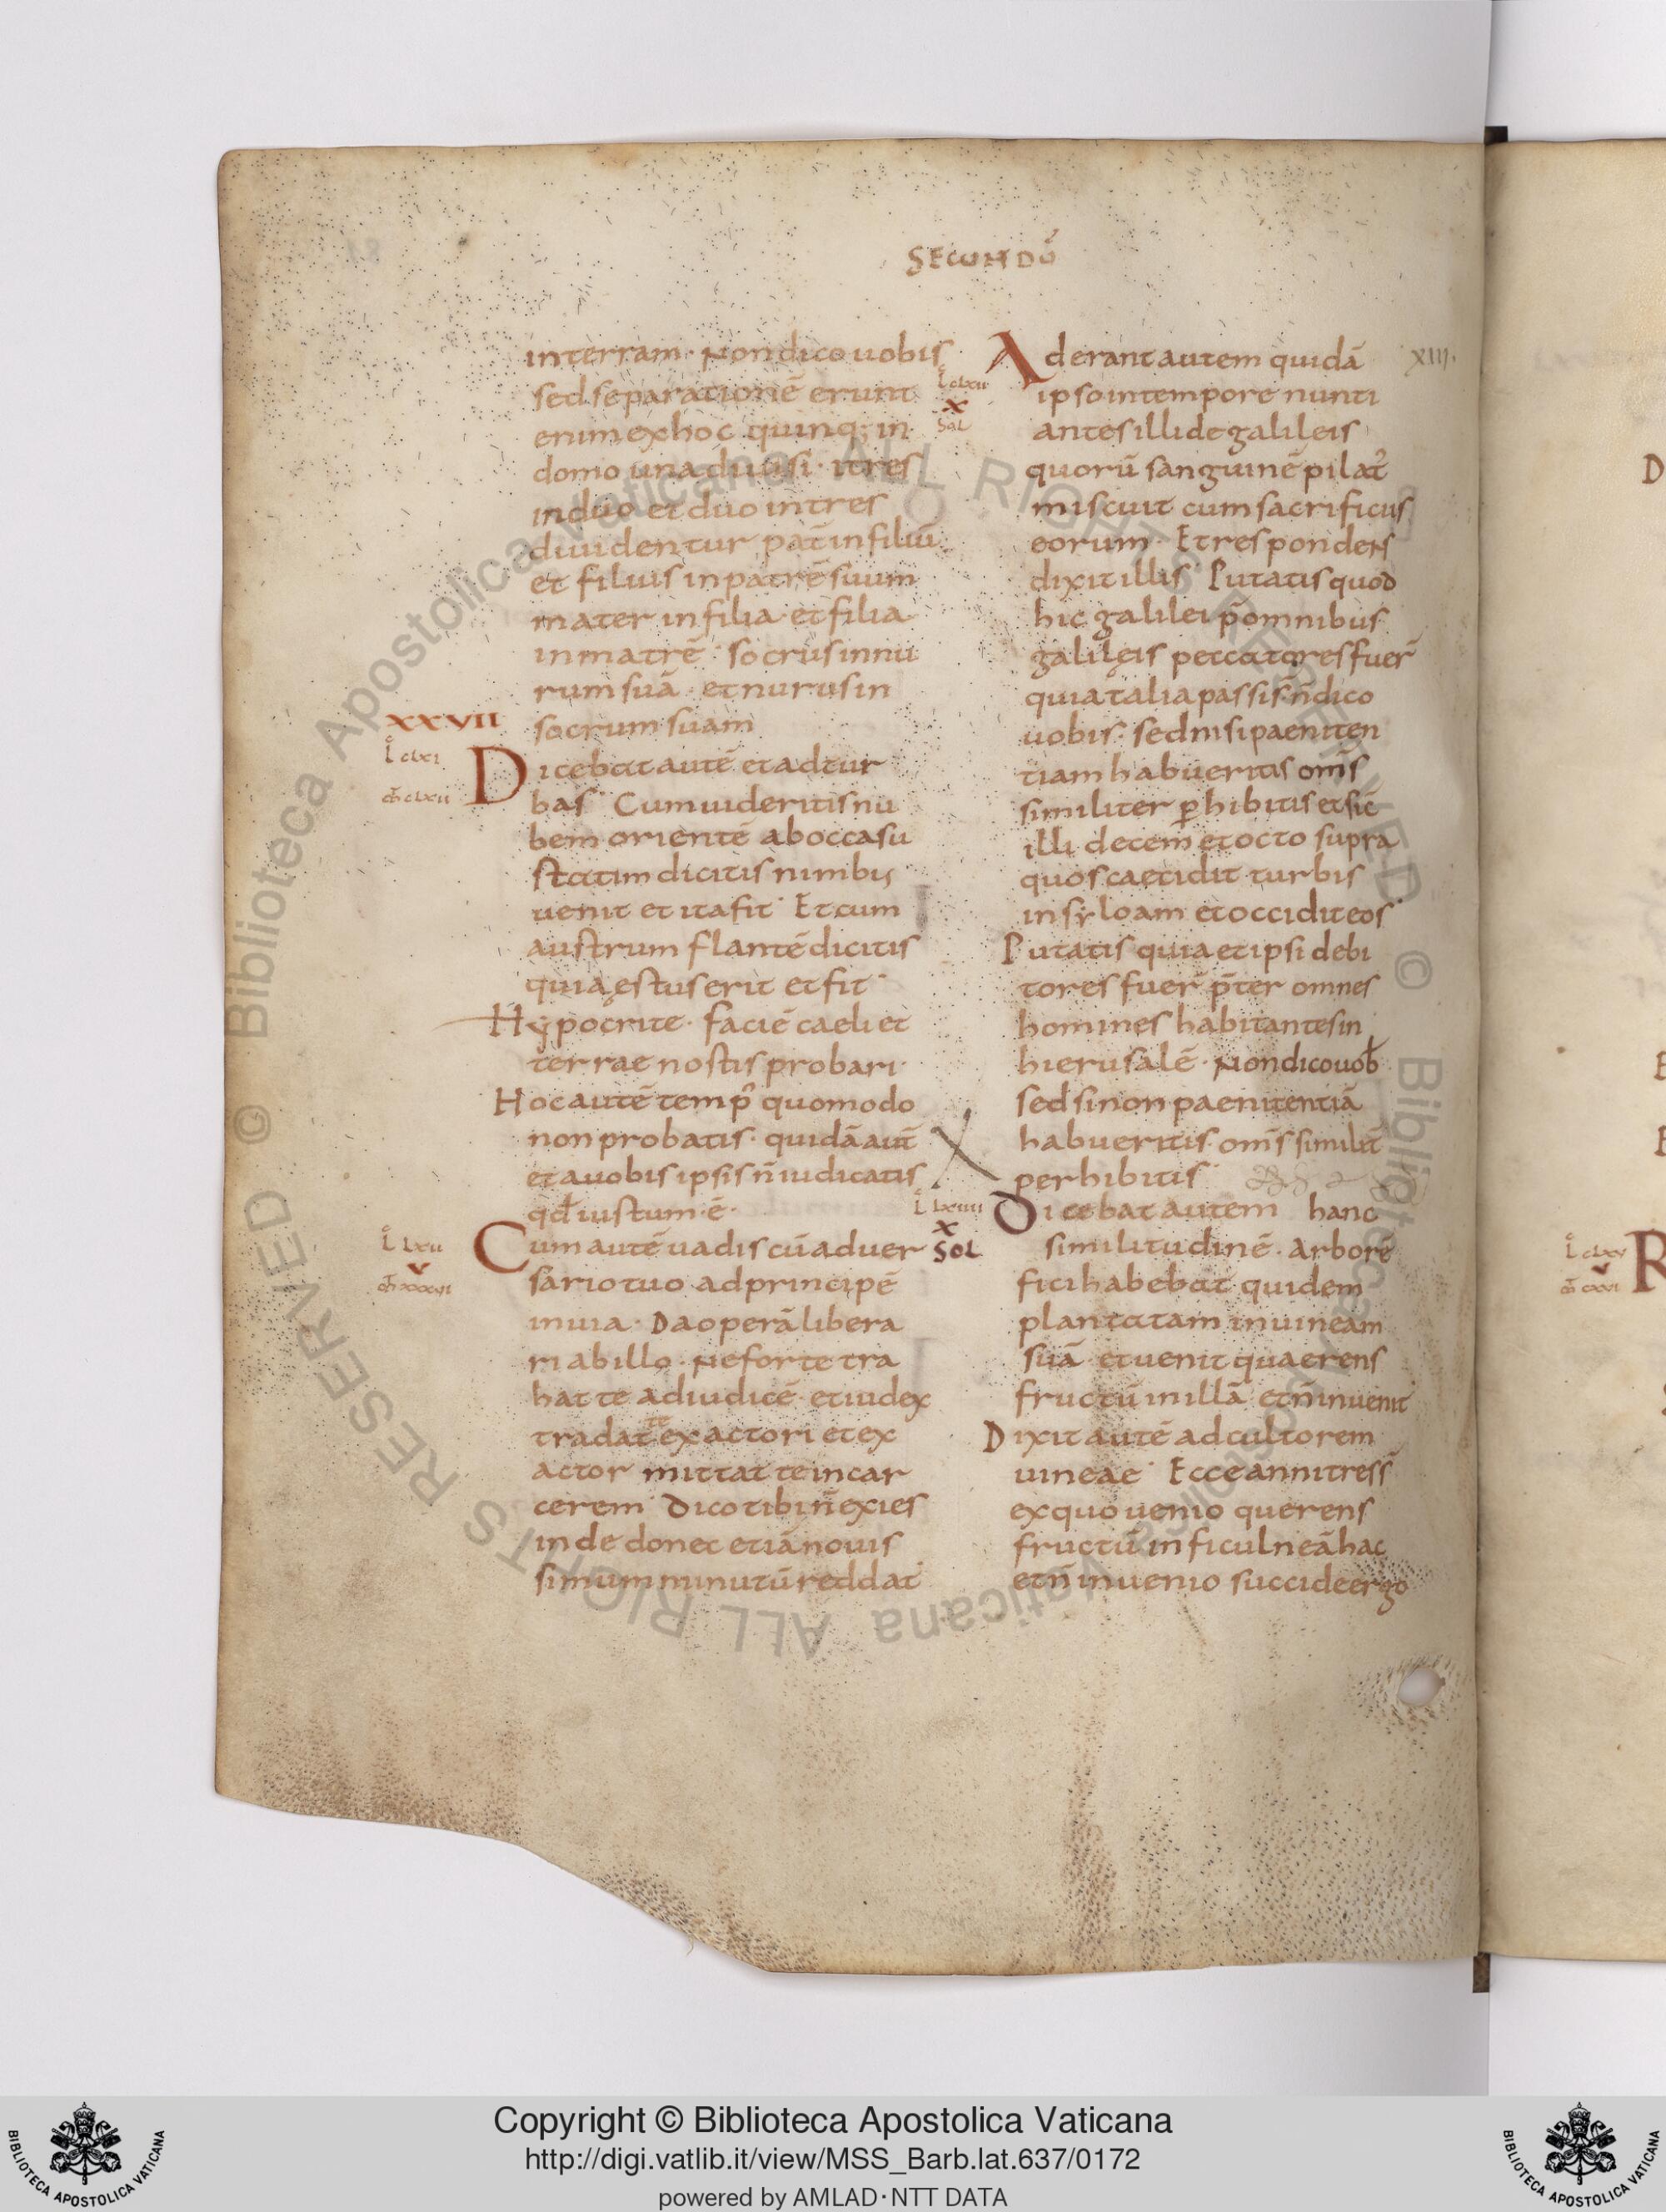 SECUNDŪ
in terram · Non dico uobis
sed separationē erunt
enim ex hoc quinq; in
domo una diuisi · itres
in duo et duo in tres
diuidentur pat̄ in filiū
et filius in patrē suum
mater in filia · et filia
in matrē · socrus in nu
rum suā · et nurus in
socrum suam
XXVII
L clxi
Dicebat autē et ad tur
m̄ clxii
bas · Cum uideritis nu
bem orientē ab occasu
statim dicitis nimbus
uenit et ita fit · Et cum
austrum flantē dicitis
quia ęstus erit et fit ·
Hypocrite · faciē caeli et
terrae nostis probari ·
Hoc autē temp̄ quomodo
non probatis · quidā aut̄
et a uobis ipsis n̄ iudicatis
qd̄ iustum · ē ·
L lxii
Cum autē uadis cū aduer
v
m̄ xxxvi
sario tuo ad principē
in uia · Da operā libera
ri ab illo · Ne forte tra
hat te ad iudicē · et iudex
tradat te exactori et ex
actor mittat te in car
cerem · Dico tibi n̄ exies
inde donec etiā nouis
simum minutū reddat
L clxii
X
Sol
Aderant autem quidā
XIII ·
ipso in tempore nunti
antes illi de galileis
quorū sanguinē pilat᾽
miscuit cum sacrificiis
eorum · Et respondens
dixit illis · Putatis quod
hic galilei p̄ omnibus
galilęis peccatores fuer̄
quia talia passi s̄ n̄ dico
uobis · sed nisi paeniten
tiam habueritis om̄s
similiter ꝑhibitis et sic̄
illi decem et octo supra
quos caecidit turbis
in syloam et occidit eos ·
Putatis quia et ipsi debi
tores fuer̄ p̄ter omnes
homines habitantes in
hierusalē · Non dico uob̄
sed si non paenitentiā
habueritis om̄s similit̄
perhibitis ·
L lxiiii
X
Sol
Dicebat autem hanc
similitudinē · Arborē
fici habebat quidem
plantatam in uineam
suā · et uenit quaerens
fructū in illā et n̄ inuenit
Dixit autē ad cultorem
uineae · Ecce anni tres s̄
ex quo uenio querens
fructū in ficulneā hac
et n̄ inuenio succide ergo
D
E
E
L clxv
v
m̄ cxxvi
R
© Biblioteca Apostolica Vaticana ALL RIGHTS RESERVED © Biblioteca Apostolica Vaticana ALL RIGHTS RESERVED
BIBLIOTECA APOSTOLICA VATICANA
Copyright © Biblioteca Apostolica Vaticana
http://digi.vatlib.it/view/MSS_Barb.lat.637/0172
powered by AMLAD·NTT DATA
BIBLIOTECA APOSTOLICA VATICANA